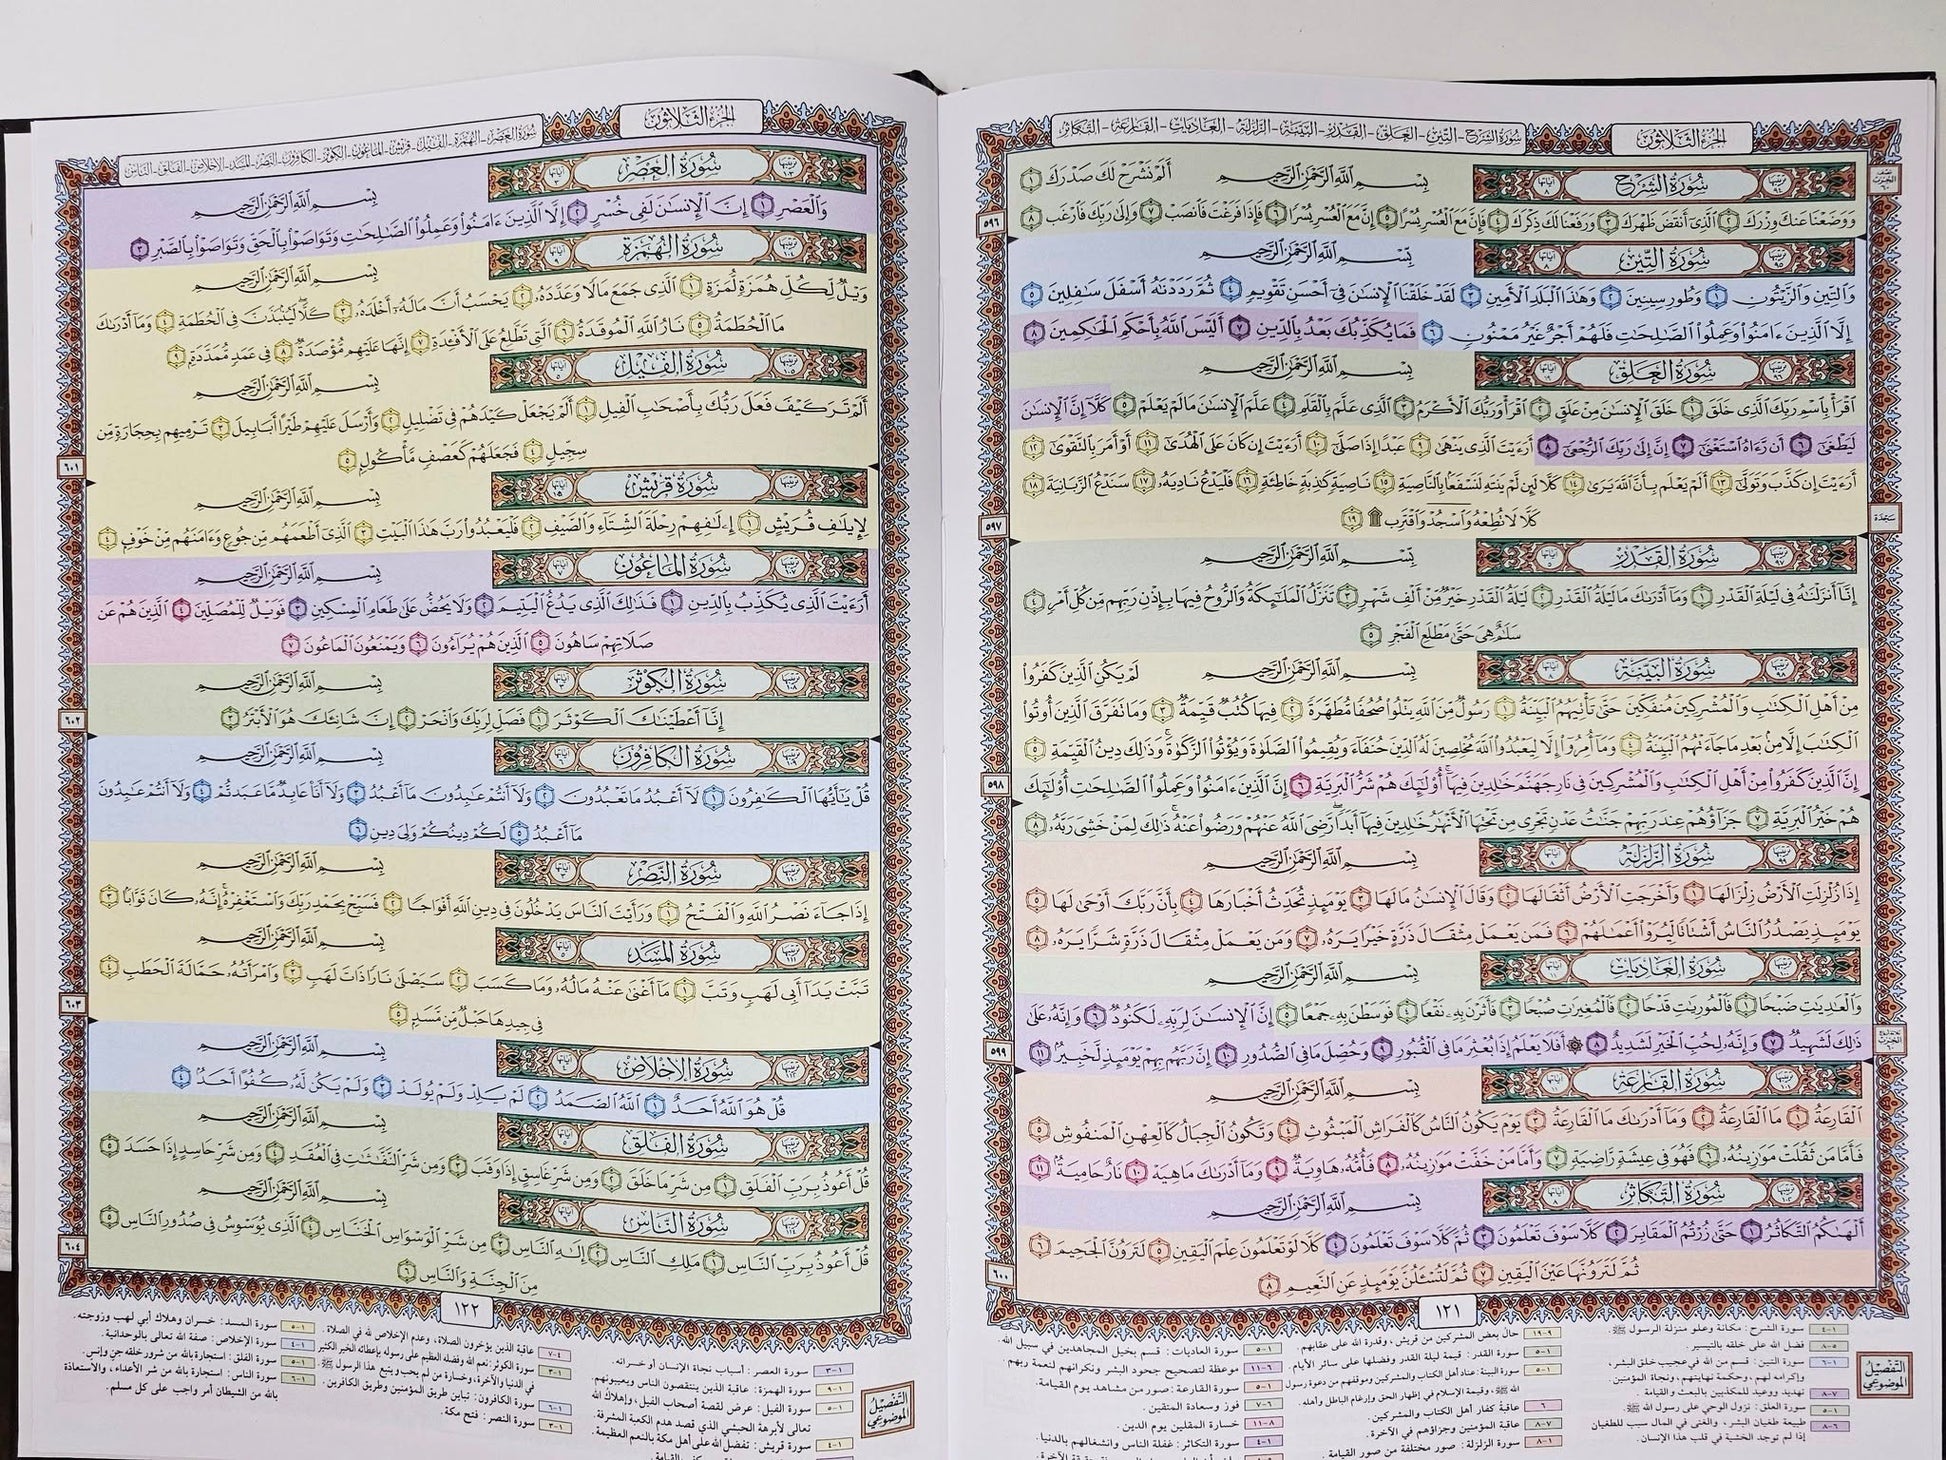 الجزء الثلاثون
سورة الشرح - التين - العلق - القدر - البينة - الزلزلة - العاديات - القارعة - التكاثر
سُورَةُ الشَّرْحِ
بِسْمِ اللَّهِ الرَّحْمَٰنِ الرَّحِيمِ
أَلَمْ نَشْرَحْ لَكَ صَدْرَكَ ١
وَوَضَعْنَا عَنكَ وِزْرَكَ ٢ الَّذِي أَنقَضَ ظَهْرَكَ ٣ وَرَفَعْنَا لَكَ ذِكْرَكَ ٤ فَإِنَّ مَعَ الْعُسْرِ يُسْرًا ٥ إِنَّ مَعَ الْعُسْرِ يُسْرًا ٦ فَإِذَا فَرَغْتَ فَانصَبْ ٧ وَإِلَىٰ رَبِّكَ فَارْغَب ٨
٥٩٦
سُورَةُ التِّينِ
بِسْمِ اللَّهِ الرَّحْمَٰنِ الرَّحِيمِ
وَالتِّينِ وَالزَّيْتُونِ ١ وَطُورِ سِينِينَ ٢ وَهَٰذَا الْبَلَدِ الْأَمِينِ ٣ لَقَدْ خَلَقْنَا الْإِنسَانَ فِي أَحْسَنِ تَقْوِيمٍ ٤ ثُمَّ رَدَدْنَاهُ أَسْفَلَ سَافِلِينَ ٥
إِلَّا الَّذِينَ ءَامَنُوا وَعَمِلُوا الصَّالِحَاتِ فَلَهُمْ أَجْرٌ غَيْرُ مَمْنُونٍ ٦ فَمَا يُكَذِّبُكَ بَعْدُ بِالدِّينِ ٧ أَلَيْسَ اللَّهُ بِأَحْكَمِ الْحَاكِمِينَ ٨
سُورَةُ العَلَقِ
بِسْمِ اللَّهِ الرَّحْمَٰنِ الرَّحِيمِ
اقْرَأْ بِاسْمِ رَبِّكَ الَّذِي خَلَقَ ١ خَلَقَ الْإِنسَانَ مِنْ عَلَقٍ ٢ اقْرَأْ وَرَبُّكَ الْأَكْرَمُ ٣ الَّذِي عَلَّمَ بِالْقَلَمِ ٤ عَلَّمَ الْإِنسَانَ مَا لَمْ يَعْلَمْ ٥ كَلَّا إِنَّ الْإِنسَانَ
لَيَطْغَىٰ ٦ أَن رَّءَاهُ اسْتَغْنَىٰ ٧ إِنَّ إِلَىٰ رَبِّكَ الرُّجْعَىٰ ٨ أَرَءَيْتَ الَّذِي يَنْهَىٰ ٩ عَبْدًا إِذَا صَلَّىٰ ١٠ أَرَءَيْتَ إِن كَانَ عَلَى الْهُدَىٰ ١١ أَوْ أَمَرَ بِالتَّقْوَىٰ ١٢
أَرَءَيْتَ إِن كَذَّبَ وَتَوَلَّىٰ ١٣ أَلَمْ يَعْلَم بِأَنَّ اللَّهَ يَرَىٰ ١٤ كَلَّا لَئِن لَّمْ يَنتَهِ لَنَسْفَعًا بِالنَّاصِيَةِ ١٥ نَاصِيَةٍ كَاذِبَةٍ خَاطِئَةٍ ١٦ فَلْيَدْعُ نَادِيَهُ ١٧ سَنَدْعُ الزَّبَانِيَةَ ١٨
كَلَّا لَا تُطِعْهُ وَاسْجُدْ وَاقْتَرِب ۩ ١٩
سجدة
٥٩٧
سُورَةُ القَدْرِ
بِسْمِ اللَّهِ الرَّحْمَٰنِ الرَّحِيمِ
إِنَّا أَنزَلْنَاهُ فِي لَيْلَةِ الْقَدْرِ ١ وَمَا أَدْرَاكَ مَا لَيْلَةُ الْقَدْرِ ٢ لَيْلَةُ الْقَدْرِ خَيْرٌ مِّنْ أَلْفِ شَهْرٍ ٣ تَنَزَّلُ الْمَلَائِكَةُ وَالرُّوحُ فِيهَا بِإِذْنِ رَبِّهِم مِّن كُلِّ أَمْرٍ ٤
سَلَامٌ هِيَ حَتَّىٰ مَطْلَعِ الْفَجْرِ ٥
سُورَةُ البَيِّنَةِ
بِسْمِ اللَّهِ الرَّحْمَٰنِ الرَّحِيمِ
لَمْ يَكُنِ الَّذِينَ كَفَرُوا
مِنْ أَهْلِ الْكِتَابِ وَالْمُشْرِكِينَ مُنفَكِّينَ حَتَّىٰ تَأْتِيَهُمُ الْبَيِّنَةُ ١ رَسُولٌ مِّنَ اللَّهِ يَتْلُوا صُحُفًا مُّطَهَّرَةً ٢ فِيهَا كُتُبٌ قَيِّمَةٌ ٣ وَمَا تَفَرَّقَ الَّذِينَ أُوتُوا
الْكِتَابَ إِلَّا مِن بَعْدِ مَا جَاءَتْهُمُ الْبَيِّنَةُ ٤ وَمَا أُمِرُوا إِلَّا لِيَعْبُدُوا اللَّهَ مُخْلِصِينَ لَهُ الدِّينَ حُنَفَاءَ وَيُقِيمُوا الصَّلَاةَ وَيُؤْتُوا الزَّكَاةَ وَذَٰلِكَ دِينُ الْقَيِّمَةِ ٥
إِنَّ الَّذِينَ كَفَرُوا مِنْ أَهْلِ الْكِتَابِ وَالْمُشْرِكِينَ فِي نَارِ جَهَنَّمَ خَالِدِينَ فِيهَا أُولَٰئِكَ هُمْ شَرُّ الْبَرِيَّةِ ٦ إِنَّ الَّذِينَ ءَامَنُوا وَعَمِلُوا الصَّالِحَاتِ أُولَٰئِكَ
٥٩٨
هُمْ خَيْرُ الْبَرِيَّةِ ٧ جَزَاؤُهُمْ عِندَ رَبِّهِمْ جَنَّاتُ عَدْنٍ تَجْرِي مِن تَحْتِهَا الْأَنْهَارُ خَالِدِينَ فِيهَا أَبَدًا رَّضِيَ اللَّهُ عَنْهُمْ وَرَضُوا عَنْهُ ذَٰلِكَ لِمَنْ خَشِيَ رَبَّهُ ٨
سُورَةُ الزَّلْزَلَةِ
بِسْمِ اللَّهِ الرَّحْمَٰنِ الرَّحِيمِ
إِذَا زُلْزِلَتِ الْأَرْضُ زِلْزَالَهَا ١ وَأَخْرَجَتِ الْأَرْضُ أَثْقَالَهَا ٢ وَقَالَ الْإِنسَانُ مَا لَهَا ٣ يَوْمَئِذٍ تُحَدِّثُ أَخْبَارَهَا ٤ بِأَنَّ رَبَّكَ أَوْحَىٰ لَهَا ٥
يَوْمَئِذٍ يَصْدُرُ النَّاسُ أَشْتَاتًا لِّيُرَوْا أَعْمَالَهُمْ ٦ فَمَن يَعْمَلْ مِثْقَالَ ذَرَّةٍ خَيْرًا يَرَهُ ٧ وَمَن يَعْمَلْ مِثْقَالَ ذَرَّةٍ شَرًّا يَرَهُ ٨
سُورَةُ العَادِيَاتِ
بِسْمِ اللَّهِ الرَّحْمَٰنِ الرَّحِيمِ
وَالْعَادِيَاتِ ضَبْحًا ١ فَالْمُورِيَاتِ قَدْحًا ٢ فَالْمُغِيرَاتِ صُبْحًا ٣ فَأَثَرْنَ بِهِ نَقْعًا ٤ فَوَسَطْنَ بِهِ جَمْعًا ٥ إِنَّ الْإِنسَانَ لِرَبِّهِ لَكَنُودٌ ٦ وَإِنَّهُ عَلَىٰ
ذَٰلِكَ لَشَهِيدٌ ٧ وَإِنَّهُ لِحُبِّ الْخَيْرِ لَشَدِيدٌ ٨ ۞ أَفَلَا يَعْلَمُ إِذَا بُعْثِرَ مَا فِي الْقُبُورِ ٩ وَحُصِّلَ مَا فِي الصُّدُورِ ١٠ إِنَّ رَبَّهُم بِهِمْ يَوْمَئِذٍ لَّخَبِيرٌ ١١
٥٩٩
سُورَةُ القَارِعَةِ
بِسْمِ اللَّهِ الرَّحْمَٰنِ الرَّحِيمِ
الْقَارِعَةُ ١ مَا الْقَارِعَةُ ٢ وَمَا أَدْرَاكَ مَا الْقَارِعَةُ ٣ يَوْمَ يَكُونُ النَّاسُ كَالْفَرَاشِ الْمَبْثُوثِ ٤ وَتَكُونُ الْجِبَالُ كَالْعِهْنِ الْمَنفُوشِ ٥
فَأَمَّا مَن ثَقُلَتْ مَوَازِينُهُ ٦ فَهُوَ فِي عِيشَةٍ رَّاضِيَةٍ ٧ وَأَمَّا مَنْ خَفَّتْ مَوَازِينُهُ ٨ فَأُمُّهُ هَاوِيَةٌ ٩ وَمَا أَدْرَاكَ مَا هِيَهْ ١٠ نَارٌ حَامِيَةٌ ١١
سُورَةُ التَّكَاثُرِ
بِسْمِ اللَّهِ الرَّحْمَٰنِ الرَّحِيمِ
أَلْهَاكُمُ التَّكَاثُرُ ١ حَتَّىٰ زُرْتُمُ الْمَقَابِرَ ٢ كَلَّا سَوْفَ تَعْلَمُونَ ٣ ثُمَّ كَلَّا سَوْفَ تَعْلَمُونَ ٤ كَلَّا لَوْ تَعْلَمُونَ عِلْمَ الْيَقِينِ ٥ لَتَرَوُنَّ الْجَحِيمَ ٦
ثُمَّ لَتَرَوُنَّهَا عَيْنَ الْيَقِينِ ٧ ثُمَّ لَتُسْأَلُنَّ يَوْمَئِذٍ عَنِ النَّعِيمِ ٨
٦٠٠
١٢١
التفصيل الموضوعي
١-٤ سورة الشرح: مكانة وعلو منزلة الرسول ﷺ.
٥-٨ فضل الله على خلقه بالتيسير.
١-٦ سورة التين: قسم من الله في عجيب خلق البشر،
وإكرامه لهم، وحكمة نهايتهم، ونجاة المؤمنين.
٧-٨ تهديد ووعيد للمكذبين بالبعث والقيامة.
١-٥ سورة العلق: نزول الوحي على رسول الله ﷺ.
٦-٨ طبيعة طغيان البشر، والغنى في المال سبب للطغيان
إذا لم توجد الخشية في قلب هذا الإنسان.
٩-١٩ حال بعض المشركين من قريش، وقدرة الله على عقابهم.
١-٥ سورة القدر: قيمة ليلة القدر وفضلها على سائر الأيام.
١-٥ سورة البينة: عناد أهل الكتاب والمشركين وموقفهم من دعوة رسول
الله ﷺ، وقيمة الإسلام في إظهار الحق وإرغام الباطل وأهله.
٦ عاقبة كفار أهل الكتاب والمشركين.
٧-٨ عاقبة المؤمنين وجزاؤهم في الآخرة.
١-٨ سورة الزلزلة: صور مختلفة من صور القيامة.
١-٥ سورة العاديات: قسم بخيل المجاهدين في سبيل الله.
٦-١١ موعظة لتصحيح جحود البشر ونكرانهم لنعمة ربهم
١-٥ سورة القارعة: صور من مشاهد يوم القيامة.
٦-٧ فوز وسعادة المتقين.
٨-١١ خسارة المقلين يوم الدين.
١-٤ سورة التكاثر: غفلة الناس وانشغالهم بالدنيا.
الجزء الثلاثون
سورة العصر - الهمزة - الفيل - قريش - الماعون - الكوثر - الكافرون - النصر - المسد - الإخلاص - الفلق - الناس
سُورَةُ العَصْرِ
بِسْمِ اللَّهِ الرَّحْمَٰنِ الرَّحِيمِ
وَالْعَصْرِ ١ إِنَّ الْإِنسَانَ لَفِي خُسْرٍ ٢ إِلَّا الَّذِينَ ءَامَنُوا وَعَمِلُوا الصَّالِحَاتِ وَتَوَاصَوْا بِالْحَقِّ وَتَوَاصَوْا بِالصَّبْرِ ٣
سُورَةُ الهُمَزَةِ
بِسْمِ اللَّهِ الرَّحْمَٰنِ الرَّحِيمِ
وَيْلٌ لِّكُلِّ هُمَزَةٍ لُّمَزَةٍ ١ الَّذِي جَمَعَ مَالًا وَعَدَّدَهُ ٢ يَحْسَبُ أَنَّ مَالَهُ أَخْلَدَهُ ٣ كَلَّا لَيُنبَذَنَّ فِي الْحُطَمَةِ ٤ وَمَا أَدْرَاكَ
مَا الْحُطَمَةُ ٥ نَارُ اللَّهِ الْمُوقَدَةُ ٦ الَّتِي تَطَّلِعُ عَلَى الْأَفْئِدَةِ ٧ إِنَّهَا عَلَيْهِم مُّؤْصَدَةٌ ٨ فِي عَمَدٍ مُّمَدَّدَةٍ ٩
سُورَةُ الفِيلِ
بِسْمِ اللَّهِ الرَّحْمَٰنِ الرَّحِيمِ
أَلَمْ تَرَ كَيْفَ فَعَلَ رَبُّكَ بِأَصْحَابِ الْفِيلِ ١ أَلَمْ يَجْعَلْ كَيْدَهُمْ فِي تَضْلِيلٍ ٢ وَأَرْسَلَ عَلَيْهِمْ طَيْرًا أَبَابِيلَ ٣ تَرْمِيهِم بِحِجَارَةٍ مِّن
سِجِّيلٍ ٤ فَجَعَلَهُمْ كَعَصْفٍ مَّأْكُولٍ ٥
٦٠١
سُورَةُ قُرَيْشٍ
بِسْمِ اللَّهِ الرَّحْمَٰنِ الرَّحِيمِ
لِإِيلَافِ قُرَيْشٍ ١ إِۦلَافِهِمْ رِحْلَةَ الشِّتَاءِ وَالصَّيْفِ ٢ فَلْيَعْبُدُوا رَبَّ هَٰذَا الْبَيْتِ ٣ الَّذِي أَطْعَمَهُم مِّن جُوعٍ وَءَامَنَهُم مِّنْ خَوْفٍ ٤
سُورَةُ المَاعُونِ
بِسْمِ اللَّهِ الرَّحْمَٰنِ الرَّحِيمِ
أَرَءَيْتَ الَّذِي يُكَذِّبُ بِالدِّينِ ١ فَذَٰلِكَ الَّذِي يَدُعُّ الْيَتِيمَ ٢ وَلَا يَحُضُّ عَلَىٰ طَعَامِ الْمِسْكِينِ ٣ فَوَيْلٌ لِّلْمُصَلِّينَ ٤ الَّذِينَ هُمْ عَن
صَلَاتِهِمْ سَاهُونَ ٥ الَّذِينَ هُمْ يُرَاءُونَ ٦ وَيَمْنَعُونَ الْمَاعُونَ ٧
سُورَةُ الكَوْثَرِ
بِسْمِ اللَّهِ الرَّحْمَٰنِ الرَّحِيمِ
إِنَّا أَعْطَيْنَاكَ الْكَوْثَرَ ١ فَصَلِّ لِرَبِّكَ وَانْحَرْ ٢ إِنَّ شَانِئَكَ هُوَ الْأَبْتَرُ ٣
٦٠٢
سُورَةُ الكَافِرُونَ
بِسْمِ اللَّهِ الرَّحْمَٰنِ الرَّحِيمِ
قُلْ يَا أَيُّهَا الْكَافِرُونَ ١ لَا أَعْبُدُ مَا تَعْبُدُونَ ٢ وَلَا أَنتُمْ عَابِدُونَ مَا أَعْبُدُ ٣ وَلَا أَنَا عَابِدٌ مَّا عَبَدتُّمْ ٤ وَلَا أَنتُمْ عَابِدُونَ
مَا أَعْبُدُ ٥ لَكُمْ دِينُكُمْ وَلِيَ دِينِ ٦
سُورَةُ النَّصْرِ
بِسْمِ اللَّهِ الرَّحْمَٰنِ الرَّحِيمِ
إِذَا جَاءَ نَصْرُ اللَّهِ وَالْفَتْحُ ١ وَرَأَيْتَ النَّاسَ يَدْخُلُونَ فِي دِينِ اللَّهِ أَفْوَاجًا ٢ فَسَبِّحْ بِحَمْدِ رَبِّكَ وَاسْتَغْفِرْهُ إِنَّهُ كَانَ تَوَّابًا ٣
سُورَةُ المَسَدِ
بِسْمِ اللَّهِ الرَّحْمَٰنِ الرَّحِيمِ
تَبَّتْ يَدَا أَبِي لَهَبٍ وَتَبَّ ١ مَا أَغْنَىٰ عَنْهُ مَالُهُ وَمَا كَسَبَ ٢ سَيَصْلَىٰ نَارًا ذَاتَ لَهَبٍ ٣ وَامْرَأَتُهُ حَمَّالَةَ الْحَطَبِ ٤
فِي جِيدِهَا حَبْلٌ مِّن مَّسَدٍ ٥
٦٠٣
سُورَةُ الإِخْلَاصِ
بِسْمِ اللَّهِ الرَّحْمَٰنِ الرَّحِيمِ
قُلْ هُوَ اللَّهُ أَحَدٌ ١ اللَّهُ الصَّمَدُ ٢ لَمْ يَلِدْ وَلَمْ يُولَدْ ٣ وَلَمْ يَكُن لَّهُ كُفُوًا أَحَدٌ ٤
سُورَةُ الفَلَقِ
بِسْمِ اللَّهِ الرَّحْمَٰنِ الرَّحِيمِ
قُلْ أَعُوذُ بِرَبِّ الْفَلَقِ ١ مِن شَرِّ مَا خَلَقَ ٢ وَمِن شَرِّ غَاسِقٍ إِذَا وَقَبَ ٣ وَمِن شَرِّ النَّفَّاثَاتِ فِي الْعُقَدِ ٤ وَمِن شَرِّ حَاسِدٍ إِذَا حَسَدَ ٥
سُورَةُ النَّاسِ
بِسْمِ اللَّهِ الرَّحْمَٰنِ الرَّحِيمِ
قُلْ أَعُوذُ بِرَبِّ النَّاسِ ١ مَلِكِ النَّاسِ ٢ إِلَٰهِ النَّاسِ ٣ مِن شَرِّ الْوَسْوَاسِ الْخَنَّاسِ ٤ الَّذِي يُوَسْوِسُ فِي صُدُورِ النَّاسِ ٥
مِنَ الْجِنَّةِ وَالنَّاسِ ٦
٦٠٤
١٢٢
التفصيل الموضوعي
١-٣ سورة العصر: أسباب نجاة الإنسان أو خسرانه.
١-٩ سورة الهمزة: عاقبة الذين ينتقصون الناس ويعيبونهم.
١-٥ سورة الفيل: عرض لقصة أصحاب الفيل، وإهلاك الله
تعالى لأبرهة الحبشي الذي قصد هدم الكعبة المشرفة.
١-٤ سورة قريش: تفضل الله على أهل مكة بالنعم العظيمة.
٤-٧ عاقبة الذين يؤخرون الصلاة، وعدم الإخلاص لله في الصلاة.
١-٣ سورة الكوثر: نعم الله وفضله العظيم على رسوله بإعطائه الخير الكثير
في الدنيا والآخرة، وخسارة من لم يحب ويتبع هذا الرسول ﷺ.
١-٦ سورة الكافرون: تباين طريق المؤمنين وطريق الكافرين.
١-٣ سورة النصر: فتح مكة.
١-٥ سورة المسد: خسران وهلاك أبي لهب وزوجته.
١-٤ سورة الإخلاص: صفة الله تعالى بالوحدانية.
١-٥ سورة الفلق: استجارة بالله من شرور خلقه جن وإنس.
١-٦ سورة الناس: استجارة بالله من شر الأعداء، والاستعاذة
بالله من الشيطان أمر واجب على كل مسلم.